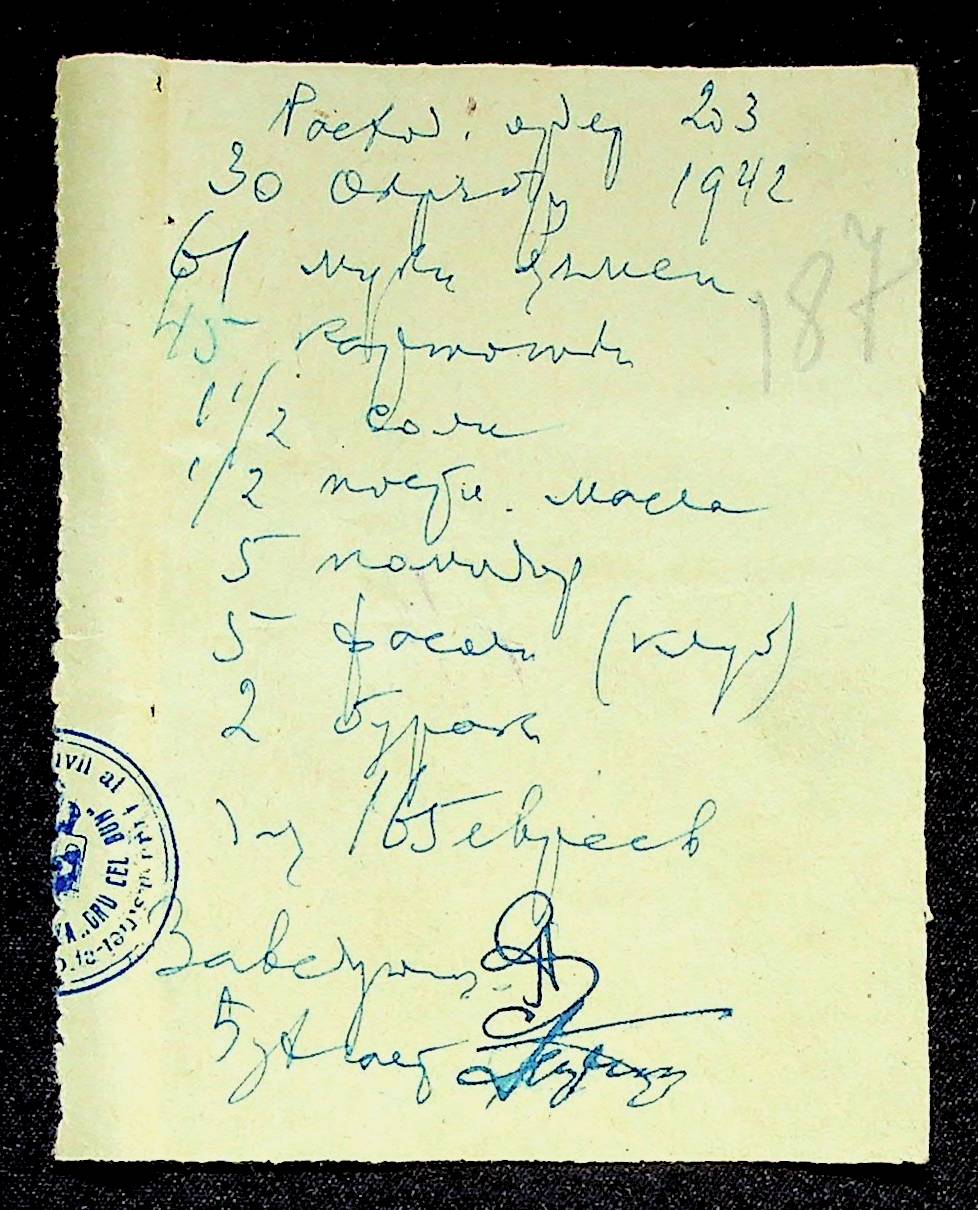 Расход. ордер 203
30 Октября 1942
61 муки ячмен.
45 картошки
1 1/2 соли
1/2 постн. масла
5 помидор
5 фасоли (клуб)
2 бурак
165 евреев
Заведующ.
Бухгалт
187
ivil al
CEL BUN"